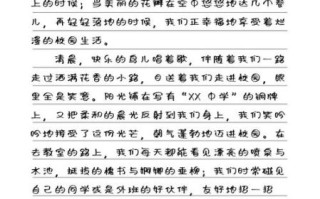 上的时候；当美丽的花瓣在空中悠悠地达几个擊
儿，再轻轻落地的时候，我们正幸福地享受着烂
漫的校园生活。
清晨，快乐的鸟儿唱着歌，伴随着我们一路
走过洒满花香的小路，目送着我们走进校园，眼
里全是笑意。阳光铺在写有“XX中学”的铜牌
上，又把柔和的晨光反射到我们身上，我们笑吟
吟地接受了这份光芒，朝气蓬勃地迈进校园。在
去教室的路上，我们每天都能看见漂亮的喷泉与
水池，挺拔的槐书与婀娜的垂柳；我们时常碰见
自己的同学或是外班的好伙伴，友好地招一招